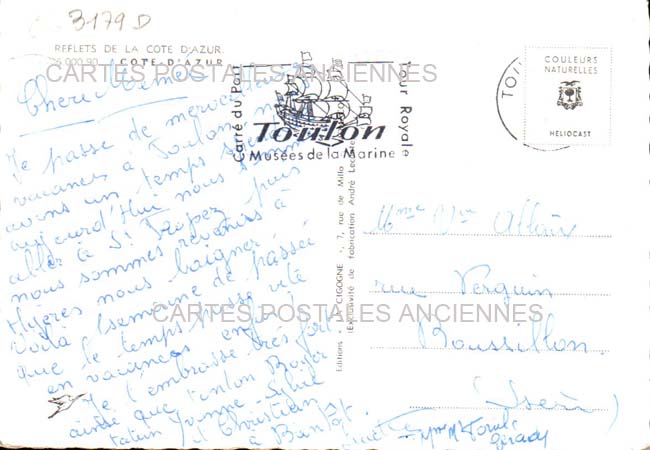 3179 D
REFLETS DE LA COTE D'AZUR
COTE D'AZUR
CARTES POSTALES ANCIENNES
Carré du Port
Tour Royale
Toulon
Musées de la Marine
COULEURS
NATURELLES
HELIOCAST
Chère Mémé
Je passe de merveilleuses
vacances à Toulon nous
avons un temps
aujourd'Hui nous sommes
aller à St Tropez puis
nous sommes revenus à
Hyères nous baigner.
Voilà 1 semaine de passée
que le temps passe vite
en vacances
Je t'embrasse très fort
ainsi que tonton Roger
tatan Yvonne - Sylvie
et Christian
à Bientôt
CARTES POSTALES ANCIENNES
CIGOGNE -, 7, rue de Milo
Exclusivité de fabrication André Leconte
Mme Vve Allair
rue Verguin
Roussillon
(Isère)
Gérard